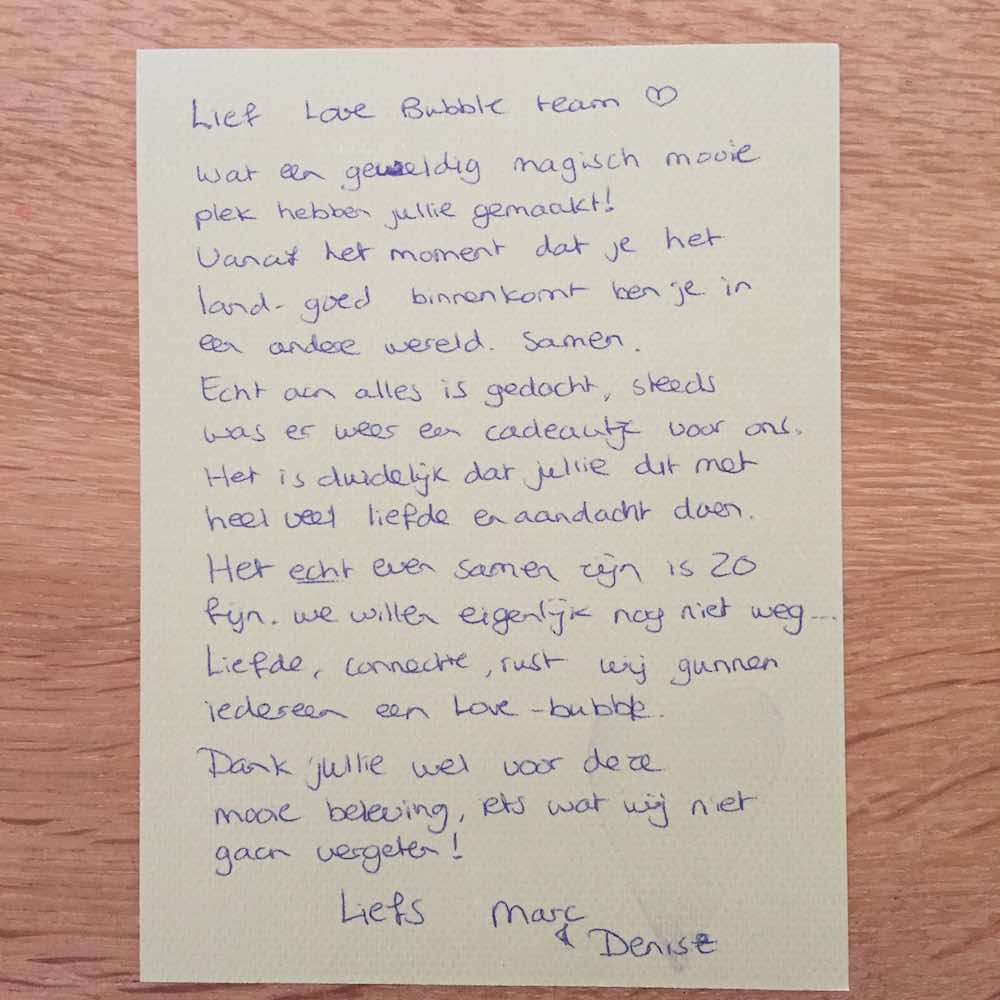 Lief Love Bubble team ♡
Wat een geweldig magisch mooie
plek hebben jullie gemaakt!
Vanaf het moment dat je het
land-goed binnenkomt ben je in
een andere wereld. Samen.
Echt aan alles is gedacht, steeds
was er weer een cadeautje voor ons.
Het is duidelijk dat jullie dit met
heel veel liefde en aandacht doen.
Het echt even samen zijn is zo
fijn. we willen eigenlijk nog niet weg...
Liefde, connectie, rust wij gunnen
iedereen een Love-bubble.
Dank jullie wel voor deze
mooie beleving, iets wat wij niet
gaan vergeten!
Liefs Marc
& Denise